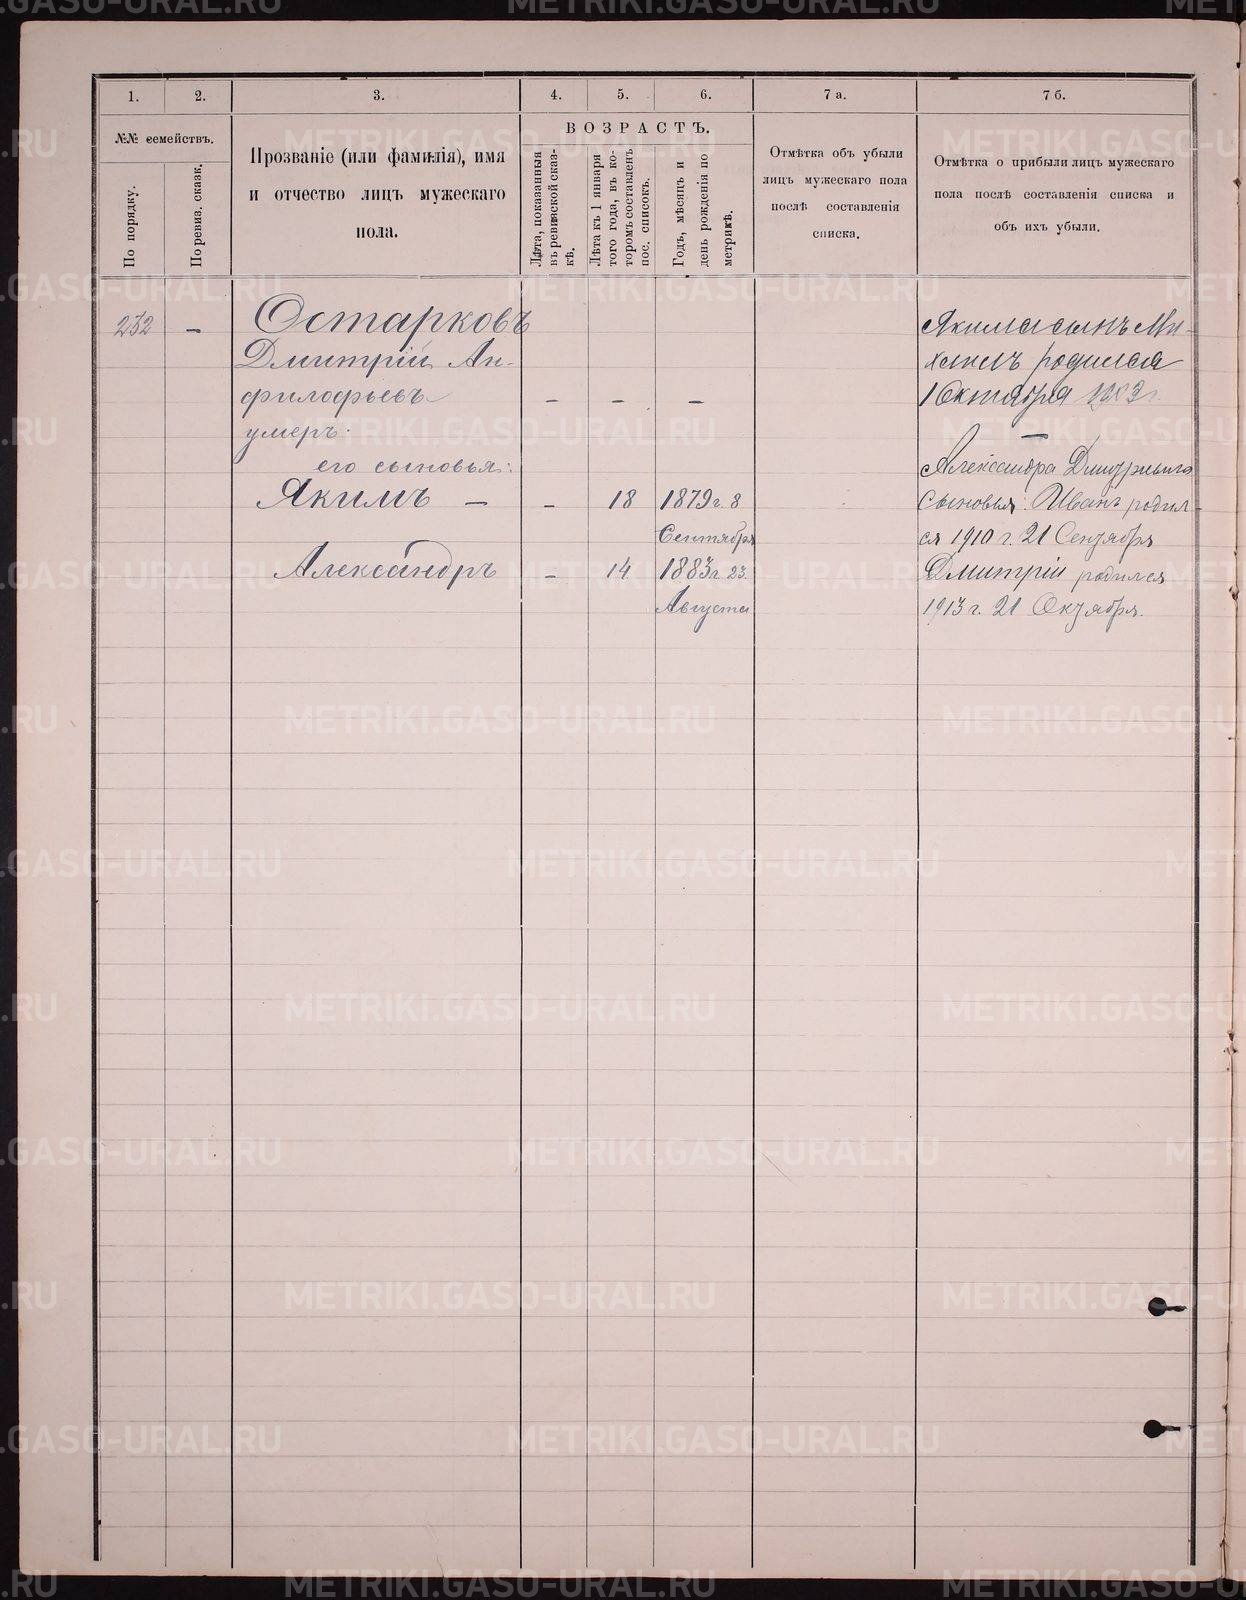 1. 2. 3. 4. 5. 6. 7 а. 7 б.
№№ семействъ.
По порядку.
По ревиз. сказк.
Прозваніе (или фамилія), имя
и отчество лицъ мужескаго
пола.
ВОЗРАСТЪ.
Лѣта, показанныя
въ ревизской сказ-
кѣ.
Лѣта къ 1 января
того года, въ ко-
торомъ составленъ
пос. списокъ.
Годъ, мѣсяцъ и
день рожденія по
метрикѣ.
Отмѣтка объ убыли
лицъ мужескаго пола
послѣ составленія
списка.
Отмѣтка о прибыли лицъ мужескаго
пола послѣ составленія списка и
объ ихъ убыли.
232 — Остарковъ
Дмитрій Ан-
филофьевъ — — —
умеръ.
его сыновья:
Якимъ — — 18 1879 г. 8
Сентября
Александръ — 14 1883 г. 23.
Августа
Якима сынъ Ми-
хаилъ родился
1 Октября
—
Александра Дмитріевича
Сыновья: Иванъ родил-
ся 1910 г. 21 Сентября
Дмитріи родился
1913 г. 21 Октября.
METRIKI.GASO-URAL.RU